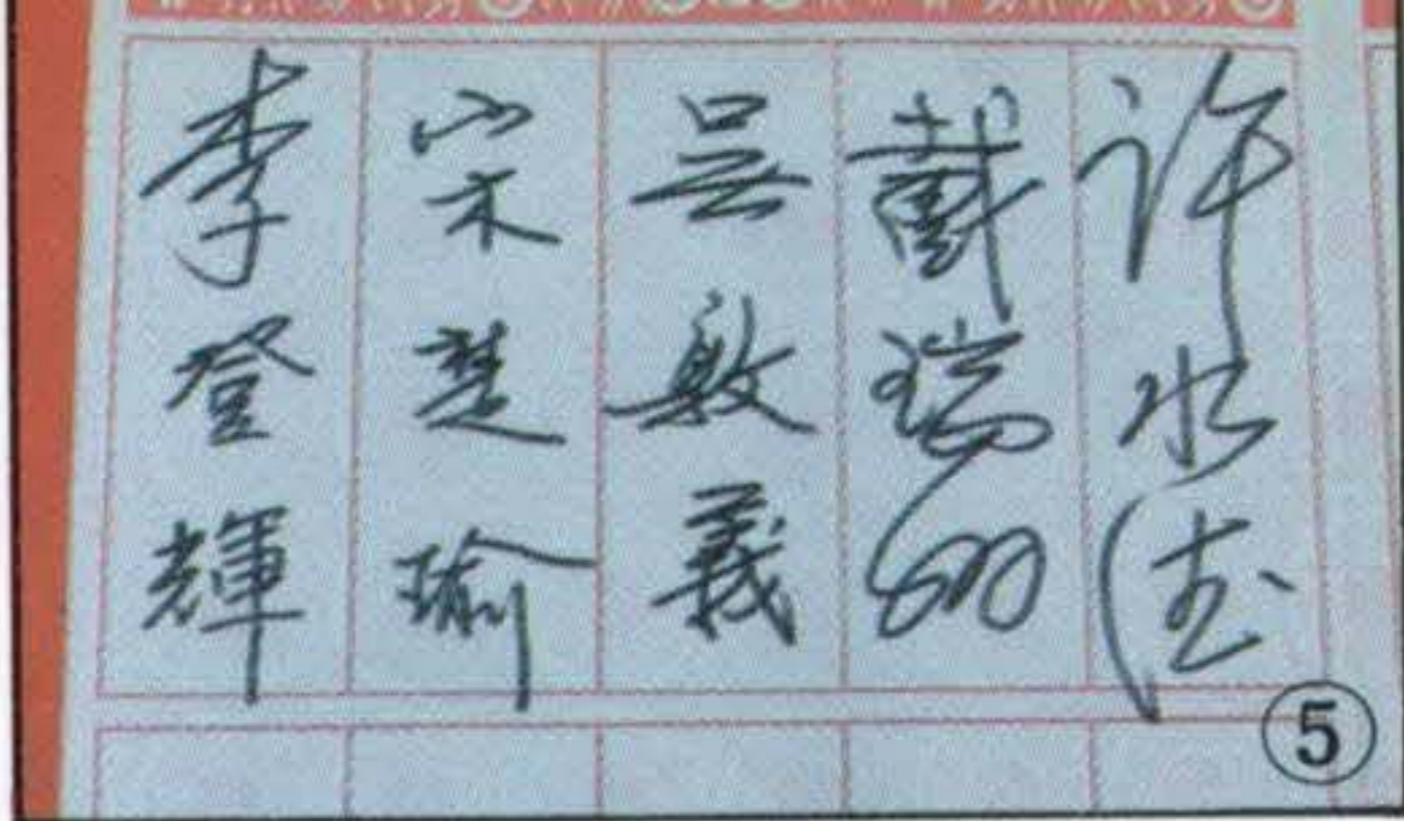 許水德
戴瑞明
吳敦義
宋楚瑜
李登輝
⑤